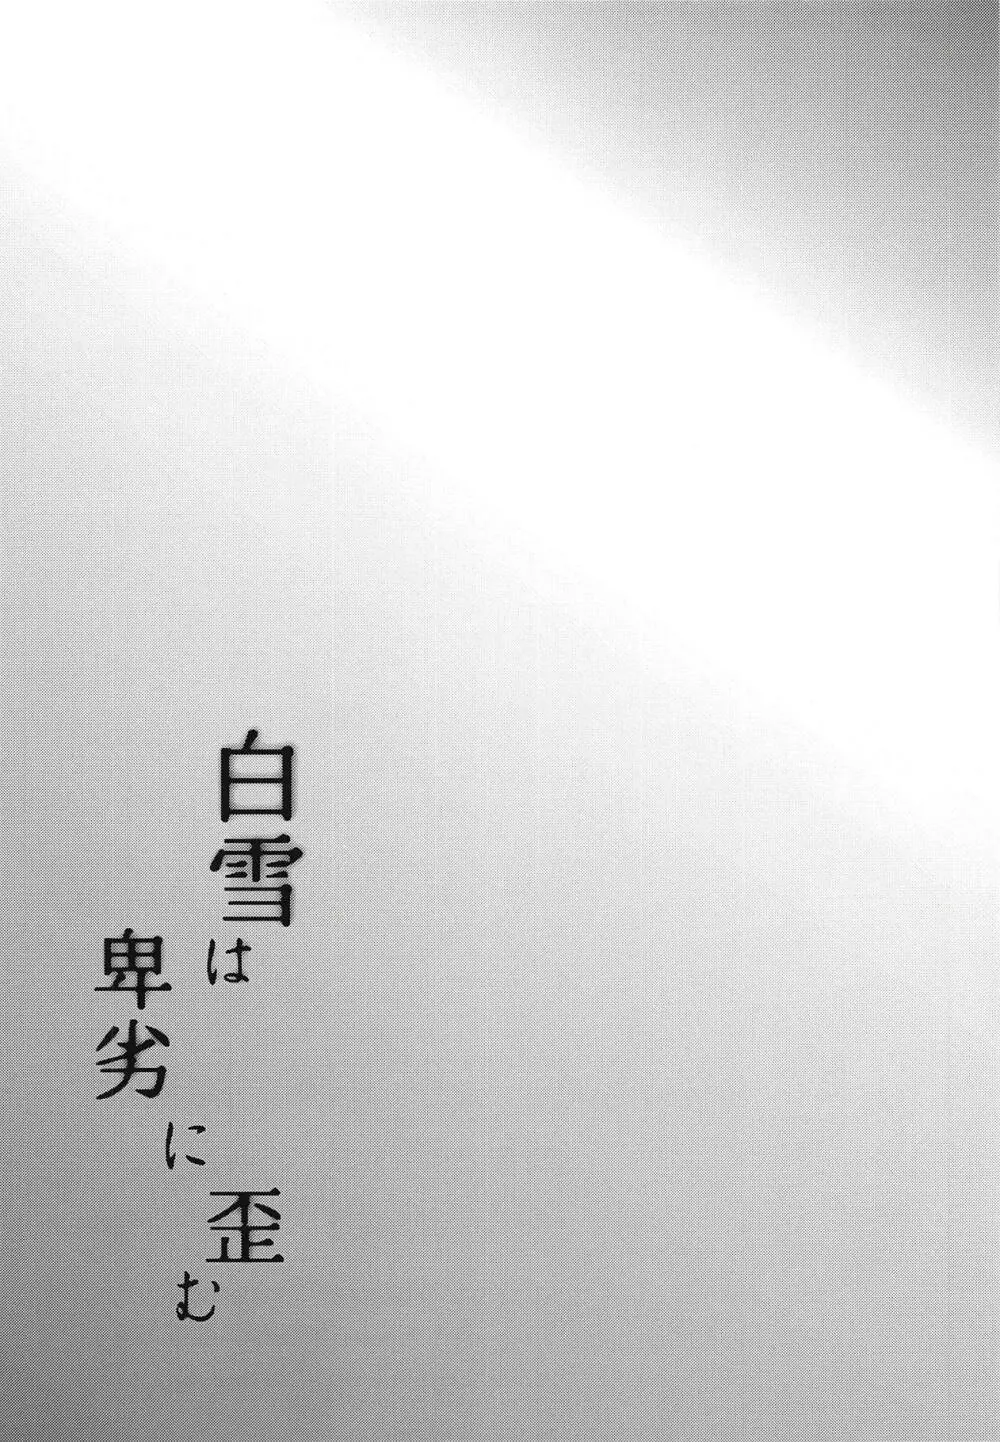 白雪は
卑劣に
歪む